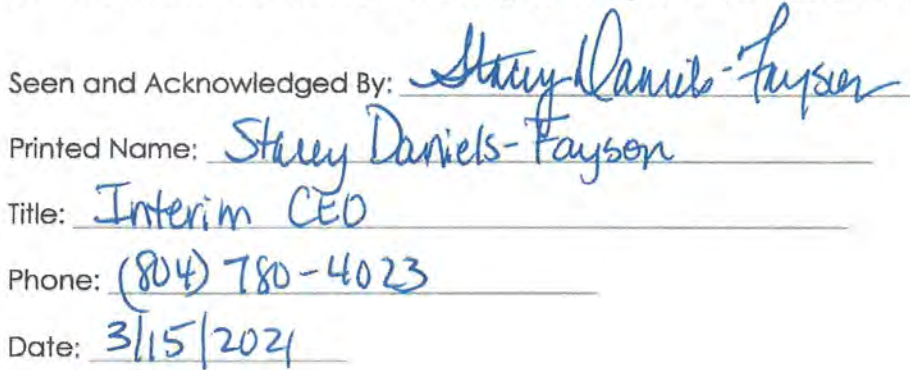 Seen and Acknowledged By: Stacey Daniels-Fayson
Printed Name: Stacey Daniels-Fayson
Title: Interim CEO
Phone: (804) 780-4023
Date: 3/15/2021